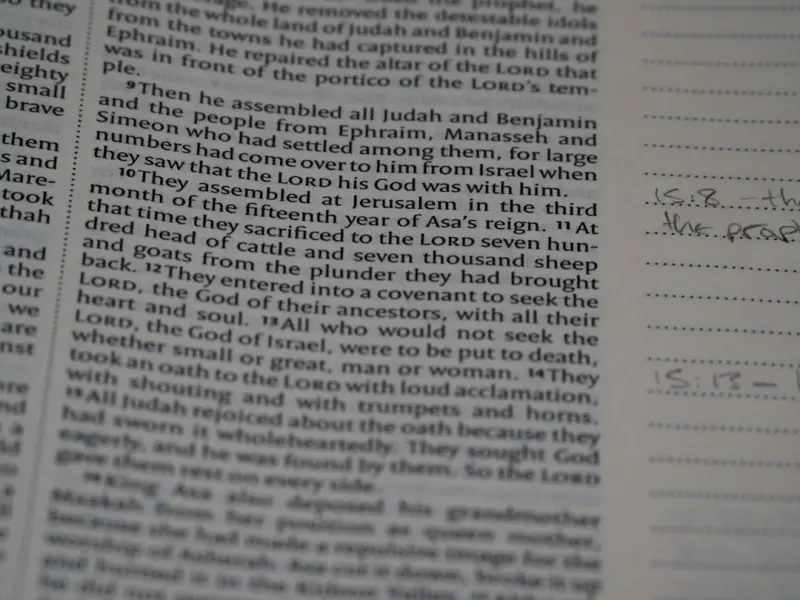 they
ousand
shields
eighty
small
brave
them
s and
Mare-
took
thah
and
the
our
we
are
nst
the prophet, he
He removed the detestable idols
from the whole land of Judah and Benjamin and
from the towns he had captured in the hills of
Ephraim. He repaired the altar of the LORD that
was in front of the portico of the LORD's tem-
ple.
9 Then he assembled all Judah and Benjamin
and the people from Ephraim, Manasseh and
Simeon who had settled among them, for large
numbers had come over to him from Israel when
they saw that the LORD his God was with him.
10 They assembled at Jerusalem in the third
month of the fifteenth year of Asa's reign. 11 At
that time they sacrificed to the LORD seven hun-
dred head of cattle and seven thousand sheep
and goats from the plunder they had brought
back. 12 They entered into a covenant to seek the
LORD, the God of their ancestors, with all their
heart and soul. 13 All who would not seek the
LORD, the God of Israel, were to be put to death,
whether small or great, man or woman. 14 They
took an oath to the LORD with loud acclamation,
with shouting and with trumpets and horns.
15 All Judah rejoiced about the oath because they
had sworn it wholeheartedly. They sought God
eagerly, and he was found by them. So the LORD
gave them rest on every side.
16 King Asa also deposed his grandmother
Maakah from her position as queen mother,
because she had made a repulsive image for the
worship of Asherah. Asa cut it down, broke it up
and burned it in the Kidron Valley.
15:8 - th
the prop
15:13 -